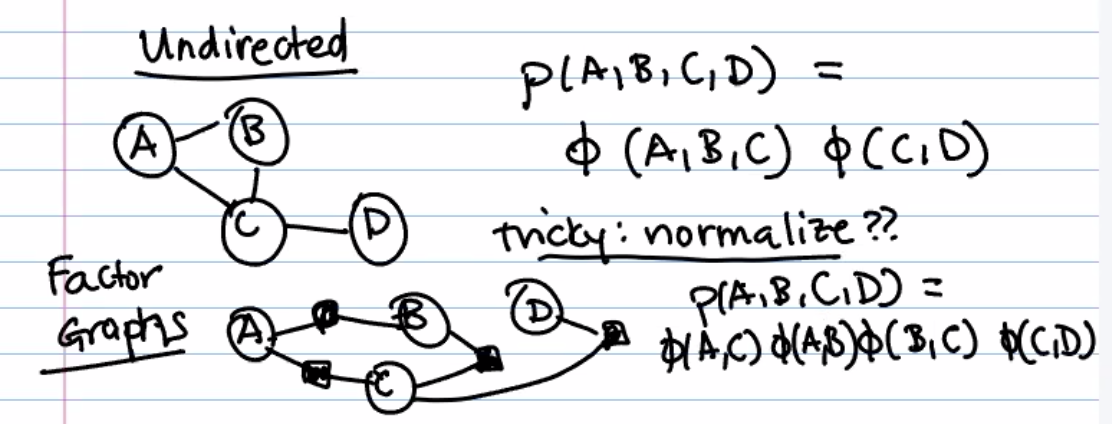 Undirected
p(A,B,C,D) =
A B
ϕ (A,B,C) ϕ(C,D)
C D
tricky: normalize??
Factor
Graphs
p(A,B,C,D) =
A B D
ϕ(A,C) ϕ(A,B) ϕ(B,C) ϕ(C,D)
C